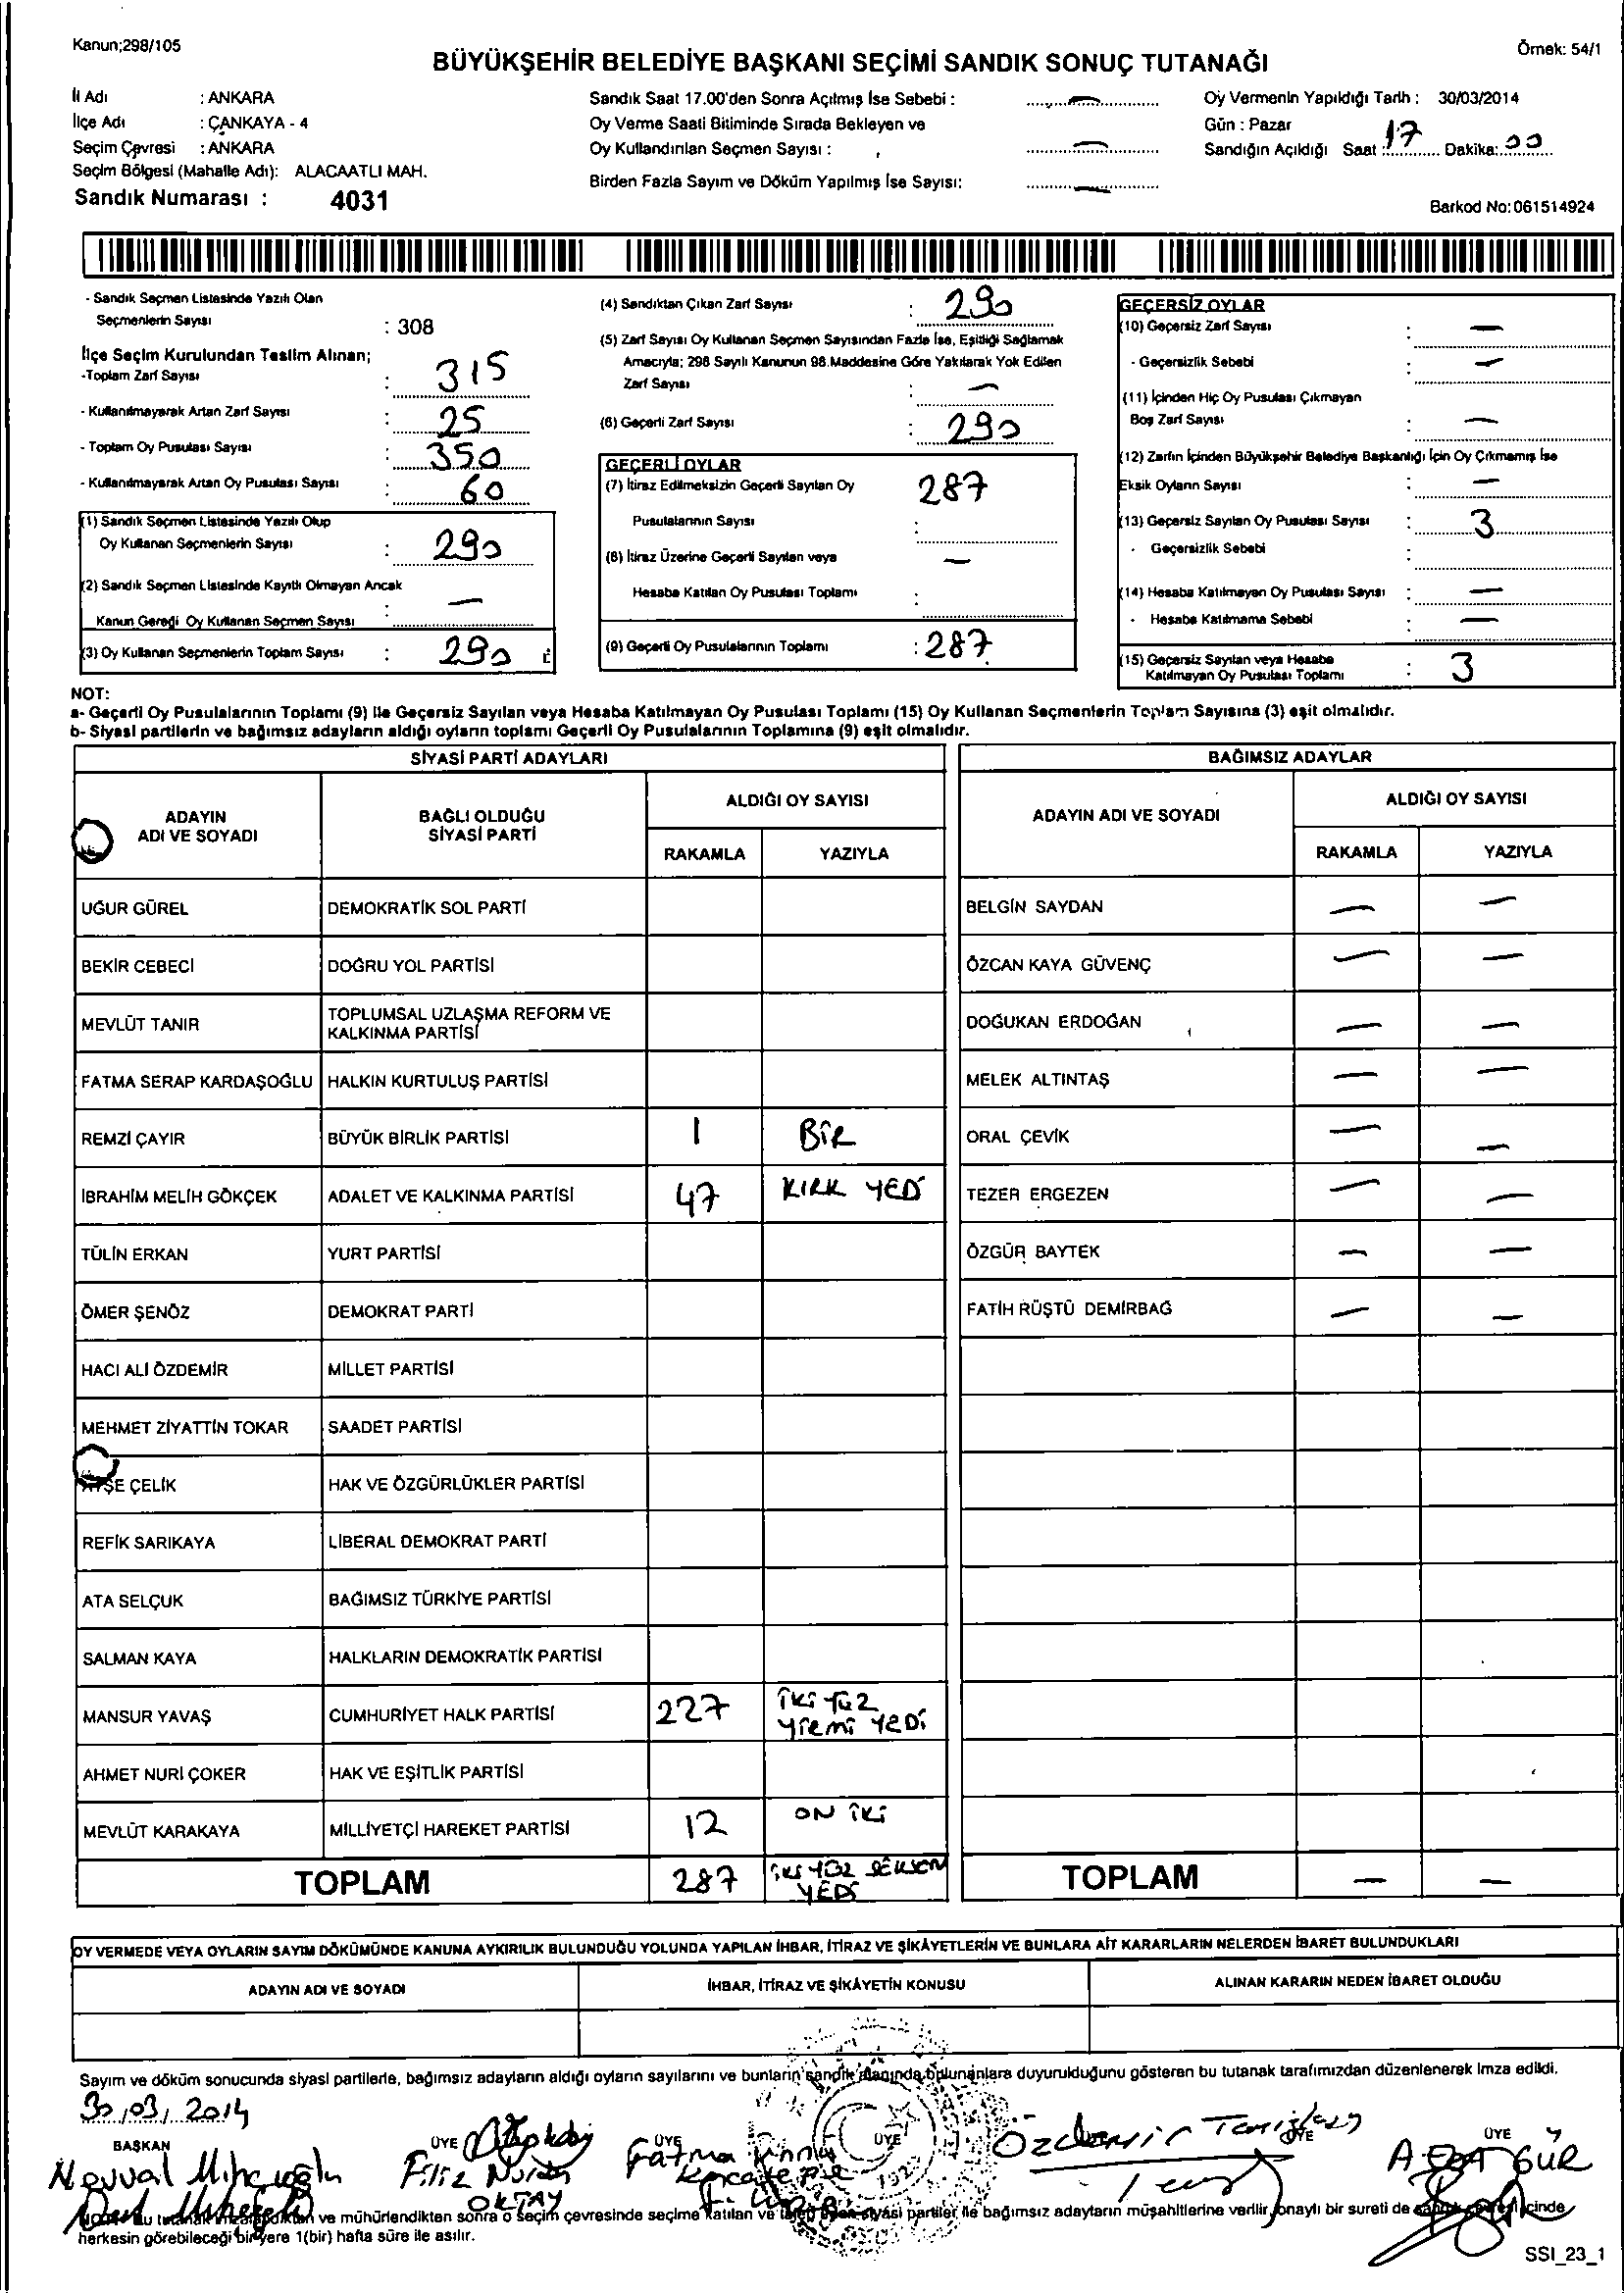 Kanun;298/105
Örnek: 54/1
BÜYÜKŞEHİR BELEDİYE BAŞKANI SEÇİMİ SANDIK SONUÇ TUTANAĞI
İl Adı : ANKARA
İlçe Adı : ÇANKAYA - 4
Seçim Çevresi : ANKARA
Seçim Bölgesi (Mahalle Adı): ALACAATLI MAH.
Sandık Numarası : 4031
Sandık Saat 17.00'den Sonra Açılmış İse Sebebi : —
Oy Verme Saati Bitiminde Sırada Bekleyen ve
Oy Kullandırılan Seçmen Sayısı : —
Birden Fazla Sayım ve Döküm Yapılmış İse Sayısı: —
Oy Vermenin Yapıldığı Tarih : 30/03/2014
Gün : Pazar
Sandığın Açıldığı Saat : 17 Dakika: 00
Barkod No:061514924
- Sandık Seçmen Listesinde Yazılı Olan
Seçmenlerin Sayısı : 308
İlçe Seçim Kurulundan Teslim Alınan;
-Toplam Zarf Sayısı : 315
- Kullanılmayarak Artan Zarf Sayısı : 25
- Toplam Oy Pusulası Sayısı : 350
- Kullanılmayarak Artan Oy Pusulası Sayısı : 60
(1) Sandık Seçmen Listesinde Yazılı Olup
Oy Kullanan Seçmenlerin Sayısı : 290
(2) Sandık Seçmen Listesinde Kayıtlı Olmayan Ancak
Kanun Gereği Oy Kullanan Seçmen Sayısı : —
(3) Oy Kullanan Seçmenlerin Toplam Sayısı : 290
(4) Sandıktan Çıkan Zarf Sayısı : 290
(5) Zarf Sayısı Oy Kullanan Seçmen Sayısından Fazla İse, Eşitliği Sağlamak
Amacıyla; 298 Sayılı Kanunun 98.Maddesine Göre Yakılarak Yok Edilen
Zarf Sayısı : —
(6) Geçerli Zarf Sayısı : 290
GEÇERLİ OYLAR
(7) İtiraz Edilmeksizin Geçerli Sayılan Oy 287
Pusulalarının Sayısı :
(8) İtiraz Üzerine Geçerli Sayılan veya —
Hesaba Katılan Oy Pusulası Toplamı :
(9) Geçerli Oy Pusulalarının Toplamı : 287
GEÇERSİZ OYLAR
(10) Geçersiz Zarf Sayısı : —
- Geçersizlik Sebebi : —
(11) İçinden Hiç Oy Pusulası Çıkmayan
Boş Zarf Sayısı : —
(12) Zarfın İçinden Büyükşehir Belediye Başkanlığı İçin Oy Çıkmamış İse
Eksik Oyların Sayısı : —
(13) Geçersiz Sayılan Oy Pusulası Sayısı : 3
- Geçersizlik Sebebi :
(14) Hesaba Katılmayan Oy Pusulası Sayısı : —
- Hesaba Katılmama Sebebi : —
(15) Geçersiz Sayılan veya Hesaba
Katılmayan Oy Pusulası Toplamı : 3
NOT:
a- Geçerli Oy Pusulalarının Toplamı (9) ile Geçersiz Sayılan veya Hesaba Katılmayan Oy Pusulası Toplamı (15) Oy Kullanan Seçmenlerin Toplam Sayısına (3) eşit olmalıdır.
b- Siyasi partilerin ve bağımsız adayların aldığı oyların toplamı Geçerli Oy Pusulalarının Toplamına (9) eşit olmalıdır.
SİYASİ PARTİ ADAYLARI
ADAYIN
ADI VE SOYADI
BAĞLI OLDUĞU
SİYASİ PARTİ
ALDIĞI OY SAYISI
RAKAMLA YAZIYLA
UĞUR GÜREL DEMOKRATİK SOL PARTİ
BEKİR CEBECİ DOĞRU YOL PARTİSİ
MEVLÜT TANIR TOPLUMSAL UZLAŞMA REFORM VE
KALKINMA PARTİSİ
FATMA SERAP KARDAŞOĞLU HALKIN KURTULUŞ PARTİSİ
REMZİ ÇAYIR BÜYÜK BİRLİK PARTİSİ 1 BİR
İBRAHİM MELİH GÖKÇEK ADALET VE KALKINMA PARTİSİ 47 KIRK YEDİ
TÜLİN ERKAN YURT PARTİSİ
ÖMER ŞENÖZ DEMOKRAT PARTİ
HACI ALİ ÖZDEMİR MİLLET PARTİSİ
MEHMET ZİYATTİN TOKAR SAADET PARTİSİ
ÇELİK HAK VE ÖZGÜRLÜKLER PARTİSİ
REFİK SARIKAYA LİBERAL DEMOKRAT PARTİ
ATA SELÇUK BAĞIMSIZ TÜRKİYE PARTİSİ
SALMAN KAYA HALKLARIN DEMOKRATİK PARTİSİ
MANSUR YAVAŞ CUMHURİYET HALK PARTİSİ 227 İKİ YÜZ
YİRMİ YEDİ
AHMET NURİ ÇOKER HAK VE EŞİTLİK PARTİSİ
MEVLÜT KARAKAYA MİLLİYETÇİ HAREKET PARTİSİ 12 ON İKİ
TOPLAM 287 İKİ YÜZ SEKSEN
YEDİ
BAĞIMSIZ ADAYLAR
ADAYIN ADI VE SOYADI
ALDIĞI OY SAYISI
RAKAMLA YAZIYLA
BELGİN SAYDAN — —
ÖZCAN KAYA GÜVENÇ — —
DOĞUKAN ERDOĞAN — —
MELEK ALTINTAŞ — —
ORAL ÇEVİK — —
TEZER ERGEZEN — —
ÖZGÜR BAYTEK — —
FATİH RÜŞTÜ DEMİRBAĞ — —
TOPLAM — —
OY VERMEDE VEYA OYLARIN SAYIM DÖKÜMÜNDE KANUNA AYKIRILIK BULUNDUĞU YOLUNDA YAPILAN İHBAR, İTİRAZ VE ŞİKÂYETLERİN VE BUNLARA AİT KARARLARIN NELERDEN İBARET BULUNDUKLARI
ADAYIN ADI VE SOYADI İHBAR, İTİRAZ VE ŞİKÂYETİN KONUSU ALINAN KARARIN NEDEN İBARET OLDUĞU
Sayım ve döküm sonucunda siyasi partilerle, bağımsız adayların aldığı oyların sayılarını ve bunların sandık alanında bulunanlara duyurulduğunu gösteren bu tutanak tarafımızdan düzenlenerek imza edildi.
30/03/2014
BAŞKAN ÜYE ÜYE ÜYE ÜYE ÜYE
Filiz Nurdan
OKTAY
Fatma
Özdemir
A. EDA GÜR
ve mühürlendikten sonra o seçim çevresinde seçime katılan ve siyasi partiler ile bağımsız adayların müşahitlerine verilir, onaylı bir sureti de içinde
herkesin görebileceği bir yere 1(bir) hafta süre ile asılır.
SSI_23_1